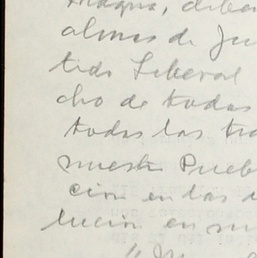 alma de Ju
tido Liberal
cho de todas
todas las tra
nuestro Pueb
ción en las d
lución en nu